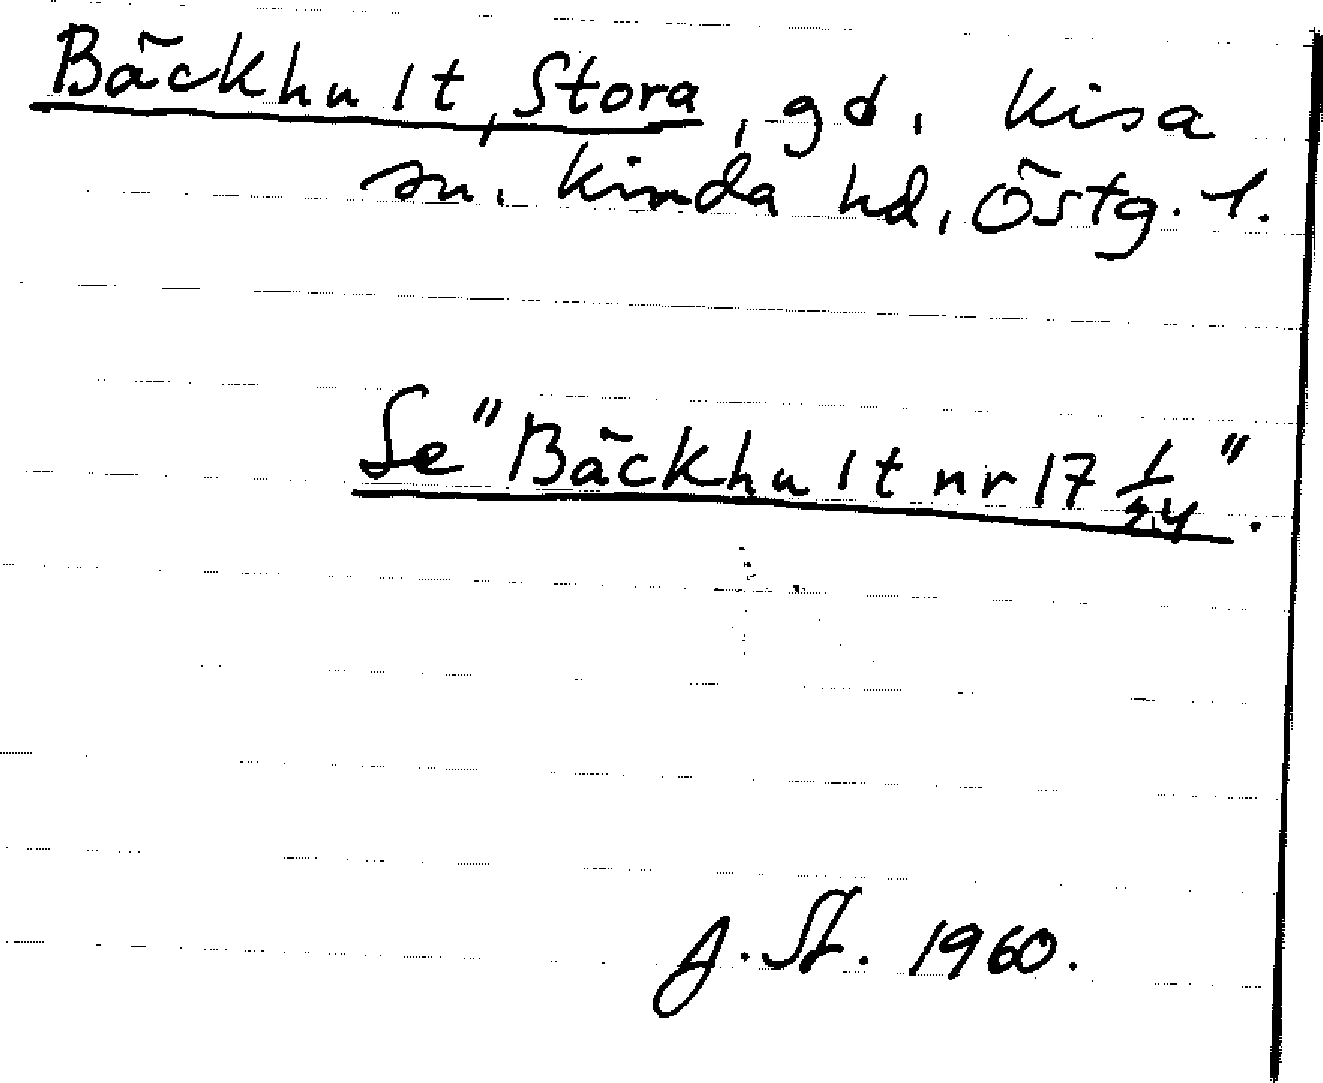 Bäckhult, Stora, gd, Kisa
sn. Kinda hd, Östg. l.
Se "Bäckhult nr 17 1/24".
J. St. 1960.